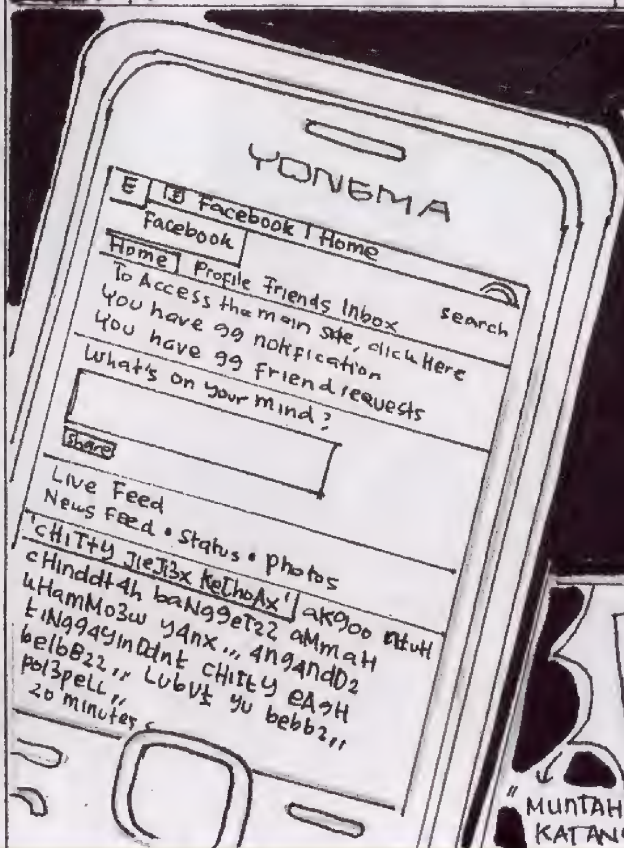 YONEMA
Facebook | Home
Facebook
Home Profile Friends Inbox
search
To Access the main site, click Here
You have 99 notification
You have 99 friend requests
What's on your mind?
share
Live Feed
News Feed • Status • Photos
'cHiTty JieJi3x KeChoAx'
cHinddt4h baNg9eT22 aMmaH
kHamMo3w y4nx ,,. 4n94ndD2
tiNg94yinDdnt CHITty eA9H
belbB22 ,, LubVt yu bebb2,,
pol3peLL ,,
20 minutes
MUNTAH
KATANG